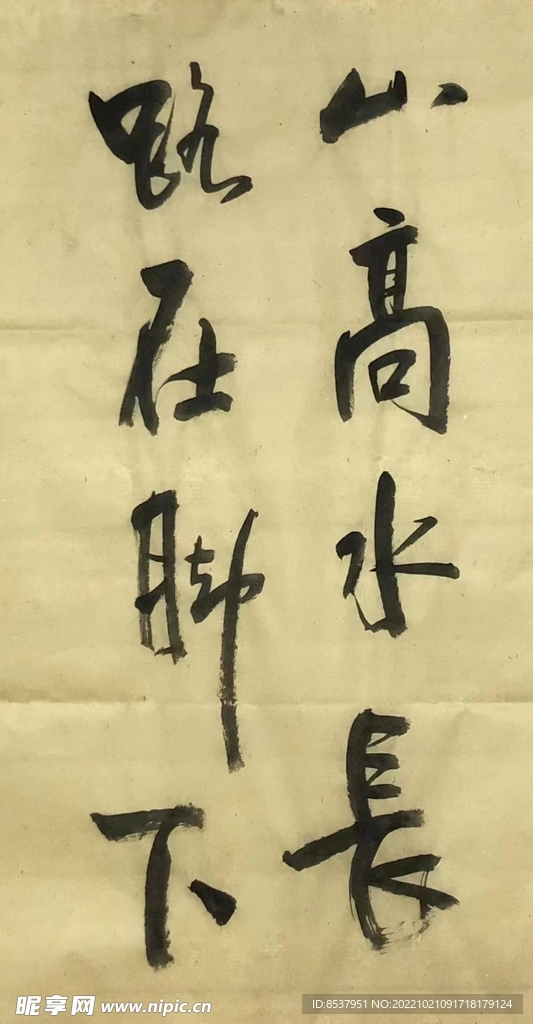 山高水長
路在脚下
昵享网 www.nipic.cn
ID:8537951 NO:20221021091718179124